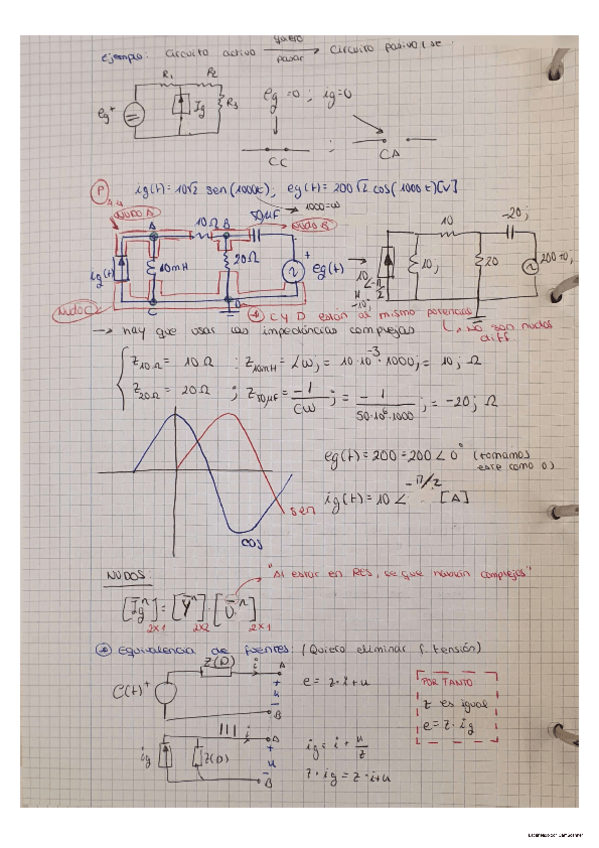 ejemplo: Circuito activo quiero pasar Circuito pasivo
R1 R2
eg + Ig R3
eg=0 ; ig=0
CC ; CA
P ig(t)=10√2 sen(1000t), eg(t)=200√2 cos(1000t)[V]
4.4
1000=w
NUDO A 10Ω B 50μF NUDO B
ig(t) 10mH 20Ω + eg(t)
10 -20j
10j 20 200+0j
-10j
NUDO C C
C y D están al mismo potencial
L, no son nudos diff
→ hay que usar las impedancias complejas
Z10Ω = 10Ω ; Z10mH = Lwj = 10·10⁻³·1000j = 10j Ω
Z20Ω = 20Ω ; Z50μF = -1/Cw j = -1/50·10⁶·1000 j = -20j Ω
eg(t) = 200 = 200 ∠ 0° (tomamos este como 0)
ig(t) = 10 ∠ -π/2 [A]
sen
cos
NUDOS:
"Al estar en RES, se que habrán complejos"
[Igⁿ] = [Yⁿ]·[Uⁿ]
2x1 2x2 2x1
Equivalencia de fuentes (Quiero eliminar f. tensión)
Z(D) i A
e(t) + + u - B
e = z·i+u
POR TANTO
z es igual
e = z·ig
ig Z(D) i A + u - B
ig = i + u/z
z·ig = z·i+u